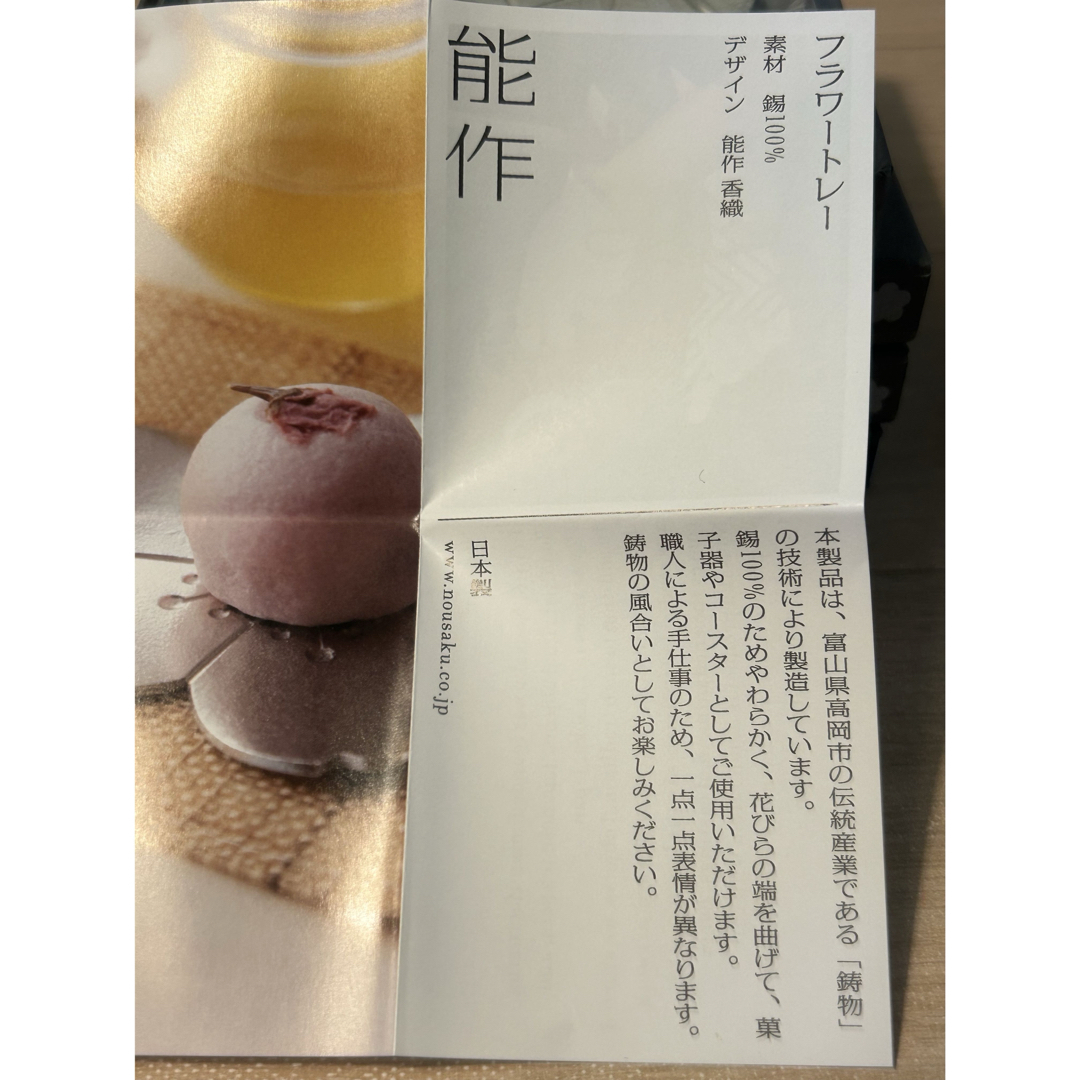 フラワートレー
素材　錫100%
デザイン　能作 香織
能作
本製品は、富山県高岡市の伝統産業である「鋳物」
の技術により製造しています。
錫100%のためやわらかく、花びらの端を曲げて、菓
子器やコースターとしてご使用いただけます。
職人による手仕事のため、一点一点表情が異なります。
鋳物の風合いとしてお楽しみください。
日本製
www.nousaku.co.jp